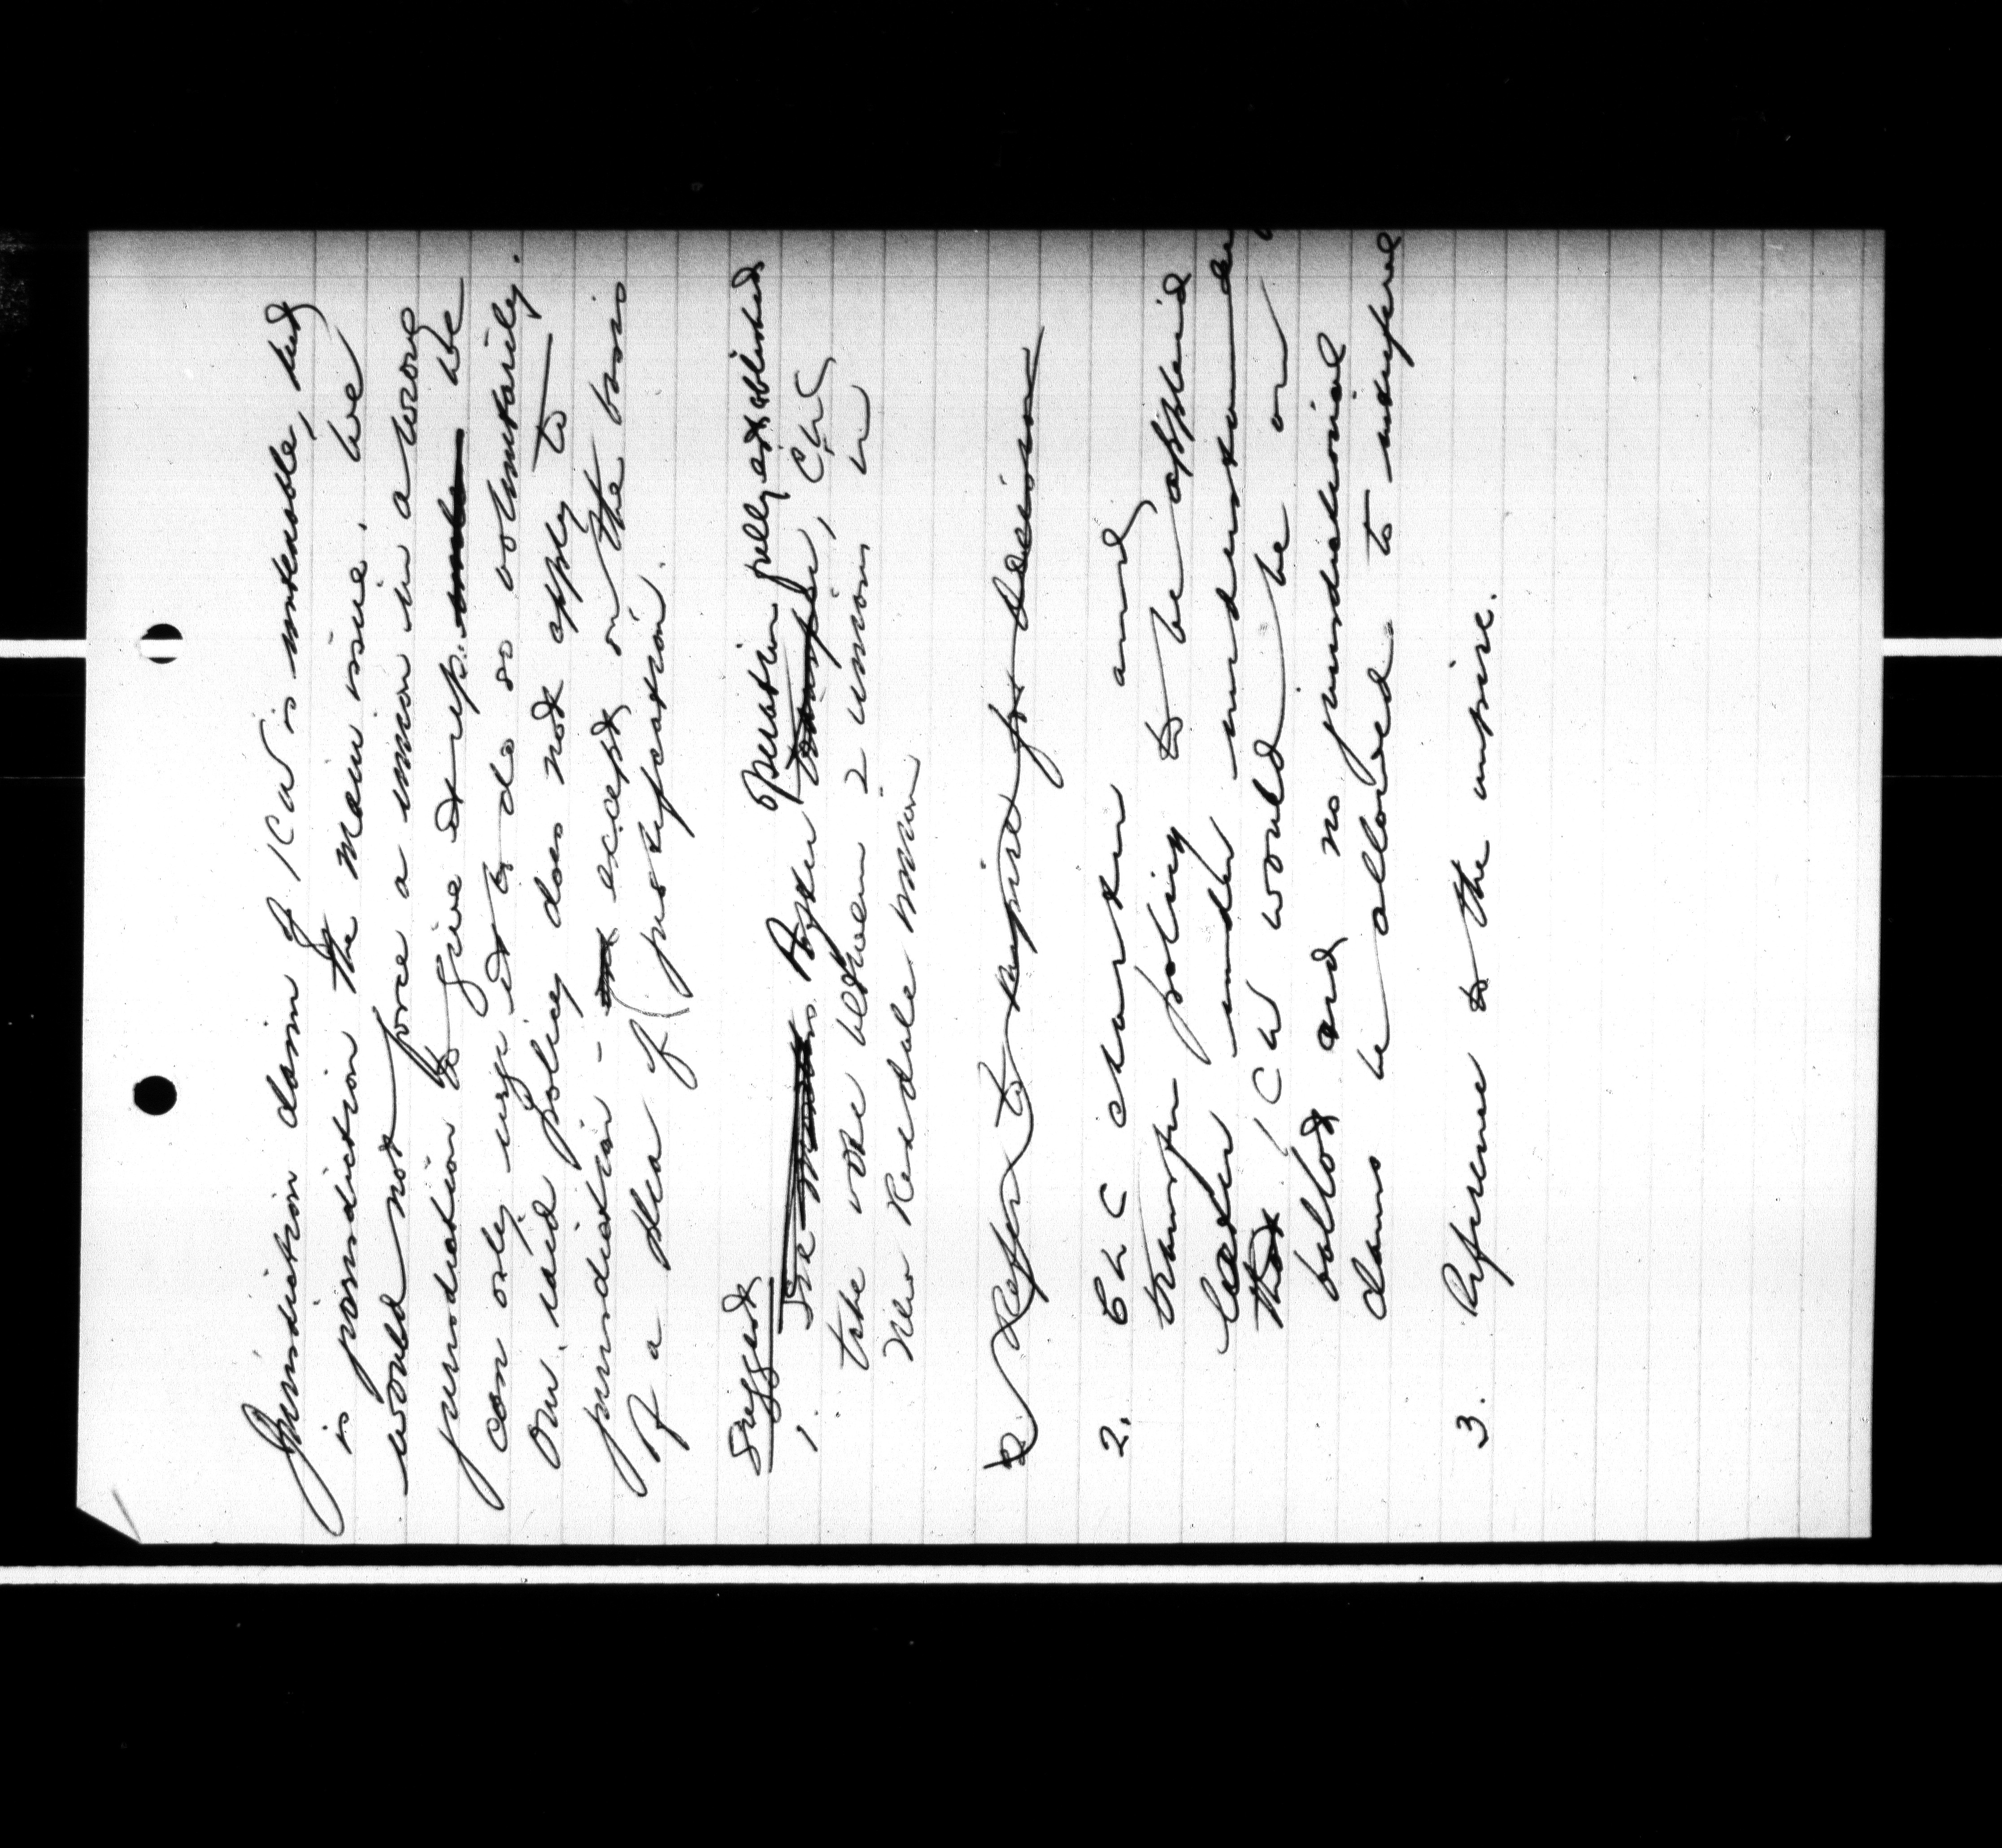 Jurisdiction claim of ICW is untenable, but
is jurisdiction the main issue. We
would not force a union in a wrong
jurisdiction to give it up. We
can only urge it to do so voluntarily.
Our raid policy does not apply to
jurisdiction - except on the basis
of a plea of justification.
Suggest
1. After operation fully established
take vote between 2 unions in
New Kendale union
Refer to umpire for decision
2. CLC charter and
transfer policy to be applied
later under understanding
that ICW would be on
ballot and no jurisdictional
claims be allowed to interfere
3. Reference to the umpire.